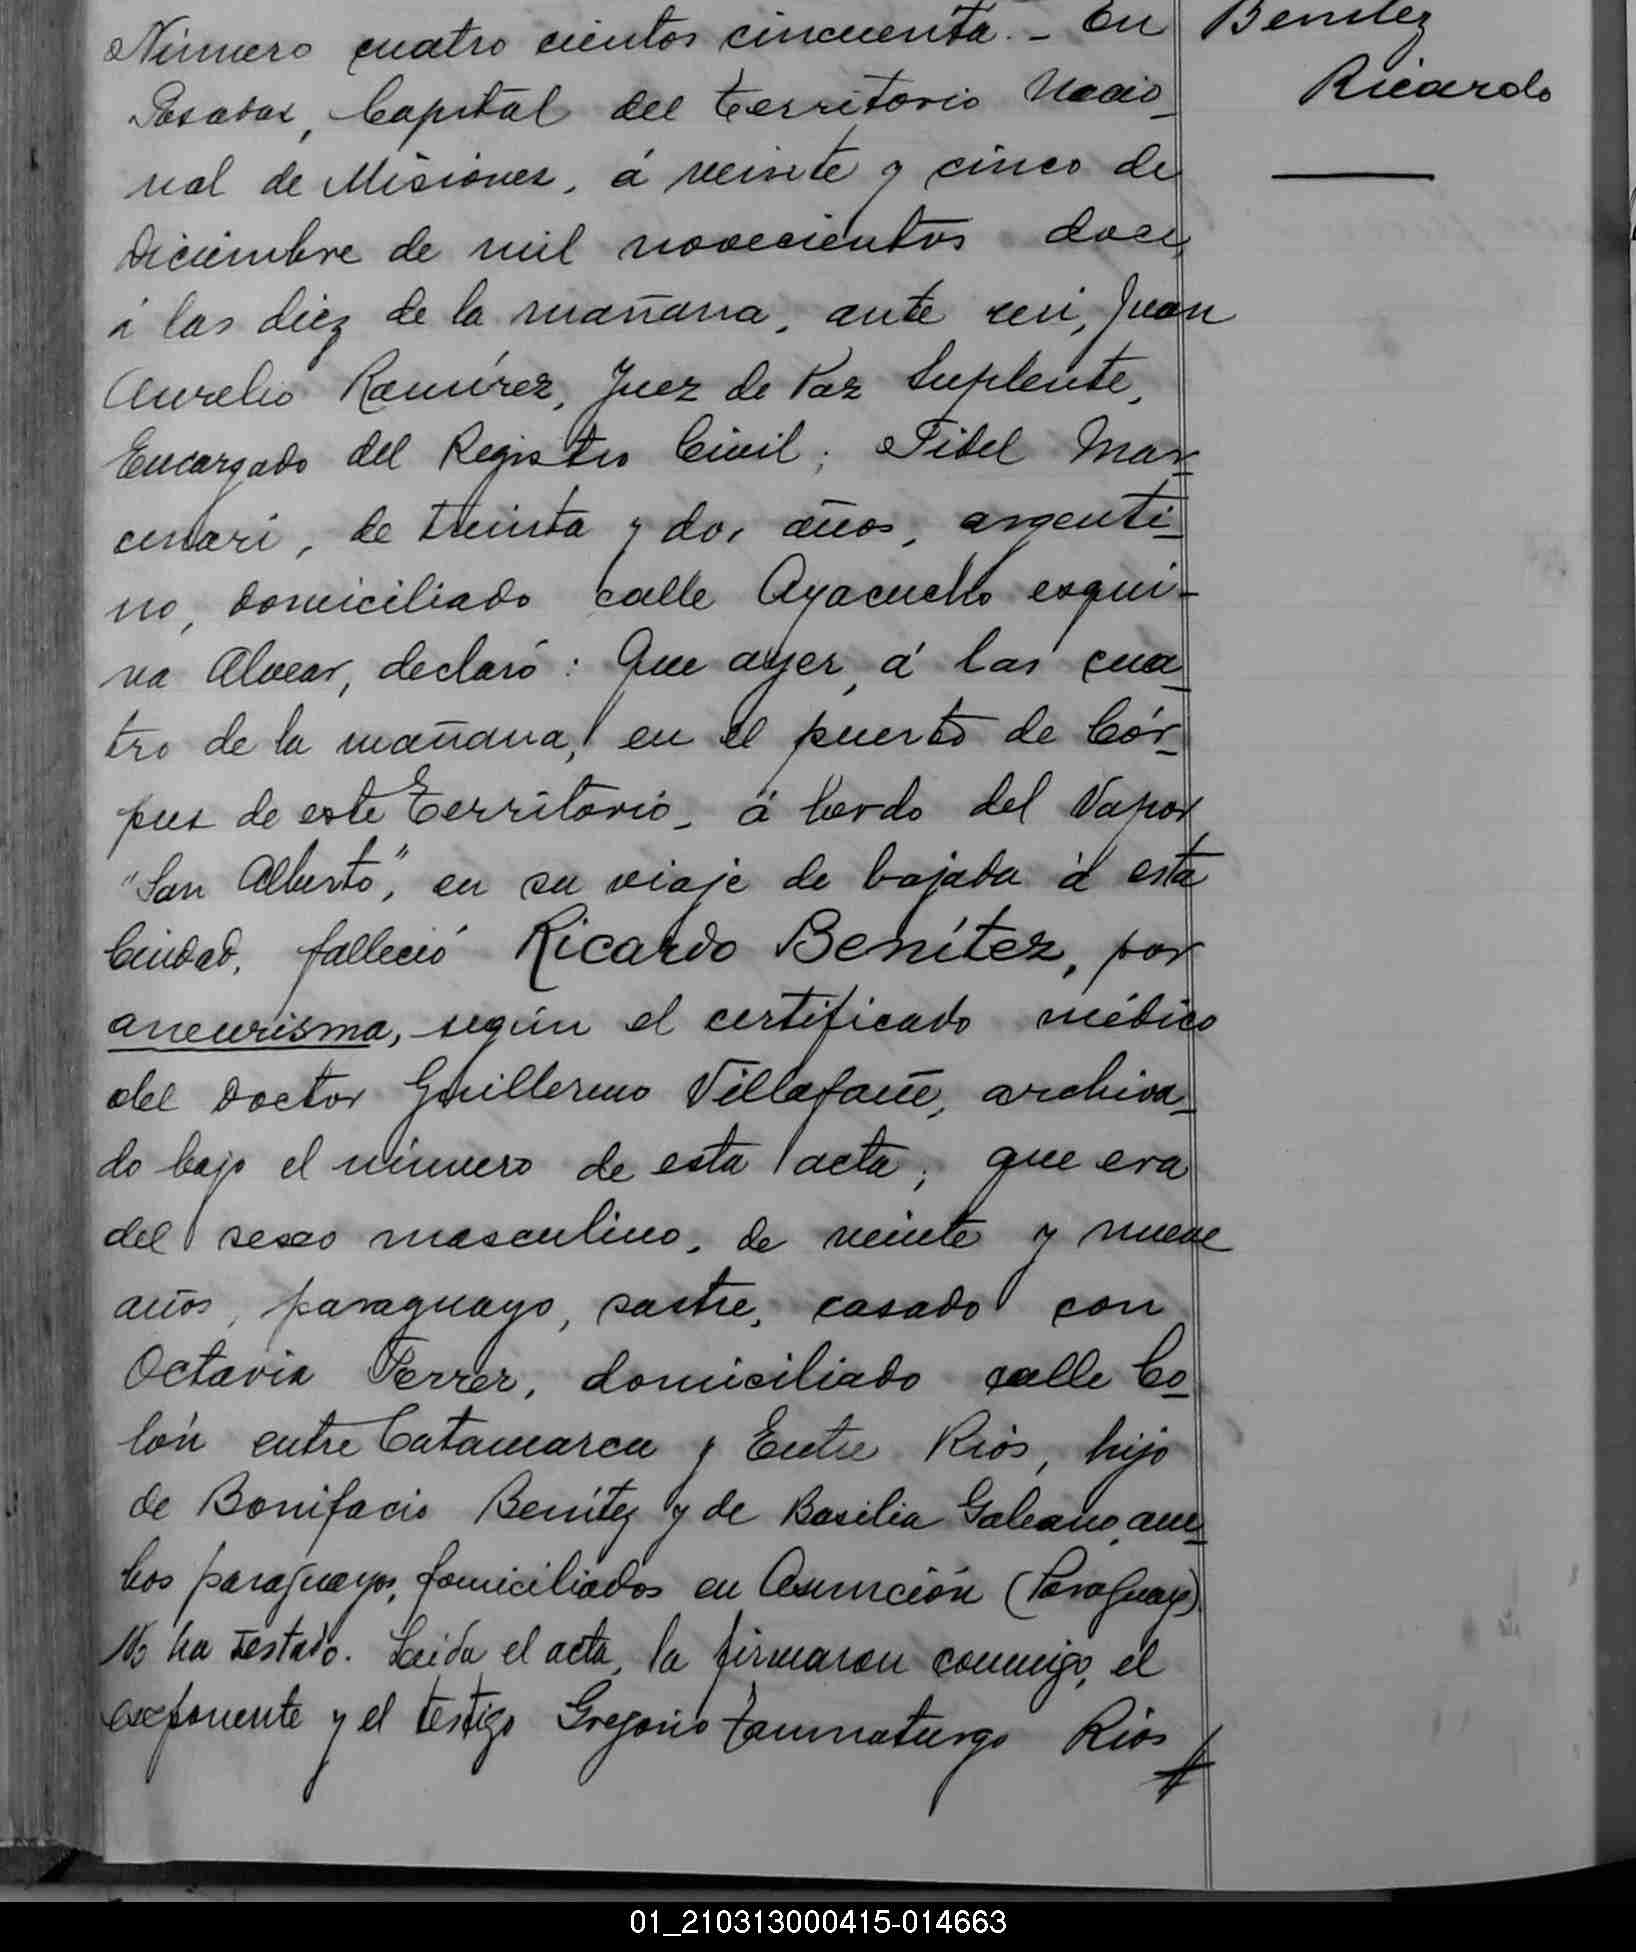 Número cuatro cientos cincuenta. - En
Posadas, Capital del Territorio Nacio-
nal de Misiones, á veinte y cinco de
Diciembre de mil novecientos doce,
á las diez de la mañana, ante mi, Juan
Aurelio Ramírez, Juez de Paz Suplente,
Encargado del Registro Civil; Fidel Mar-
cenari, de treinta y dos años, argenti-
no, domiciliado calle Ayacucho esqui-
na Alvear, declaró: Que ayer, á las cua-
tro de la mañana, en el puerto de Cór-
pus de este Territorio, á bordo del Vapor
"San Alberto", en su viaje de bajada á esta
Ciudad, falleció Ricardo Benítez, por
aneurisma, según el certificado médico
del Doctor Guillermo Villafañe, archiva-
do bajo el número de esta acta; que era
del sexo masculino, de veinte y nueve
años, paraguayo, sastre, casado con
Octavia Ferrer, domiciliado calle Co-
lón entre Catamarca y Entre Rios, hijo
de Bonifacio Benítez y de Basilia Galeano, am-
bos paraguayos, domiciliados en Asunción (Paraguay)
No ha testado. Leida el acta, la firmaron conmigo, el
exponente y el testigo Gregorio Taumaturgo Rios
Benitez
Ricardo
01_210313000415-014663